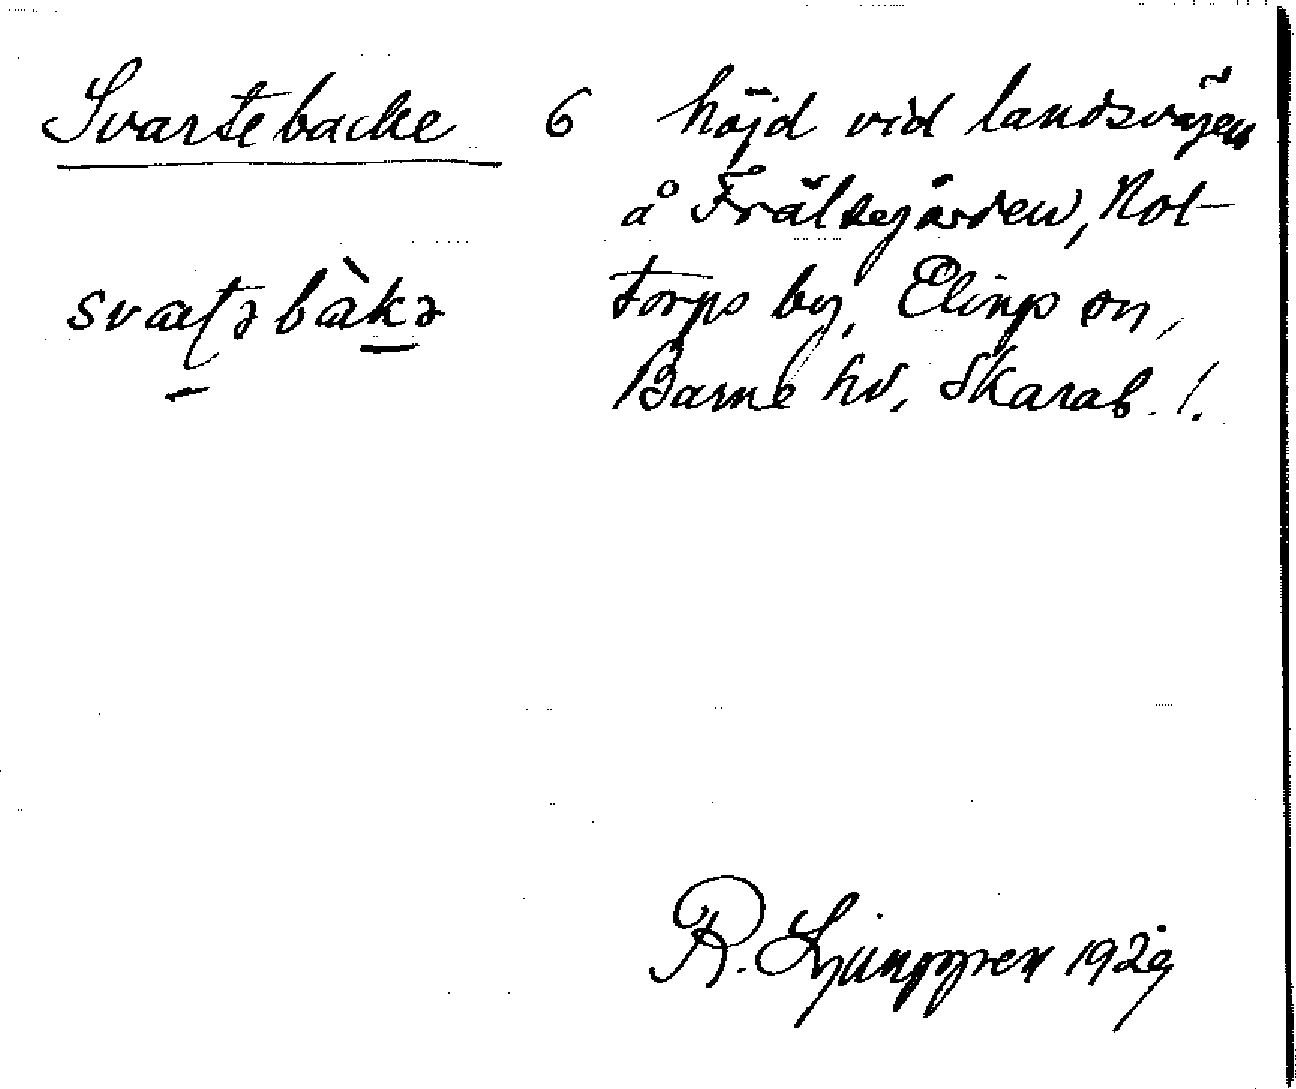 Svartebacke 6 höjd vid landsvägen
å Frälsegården, Not-
svaʈəbàkə torps by, Elings sn,
Barne hd, Skarab. !.
R. Ljunggren 1929